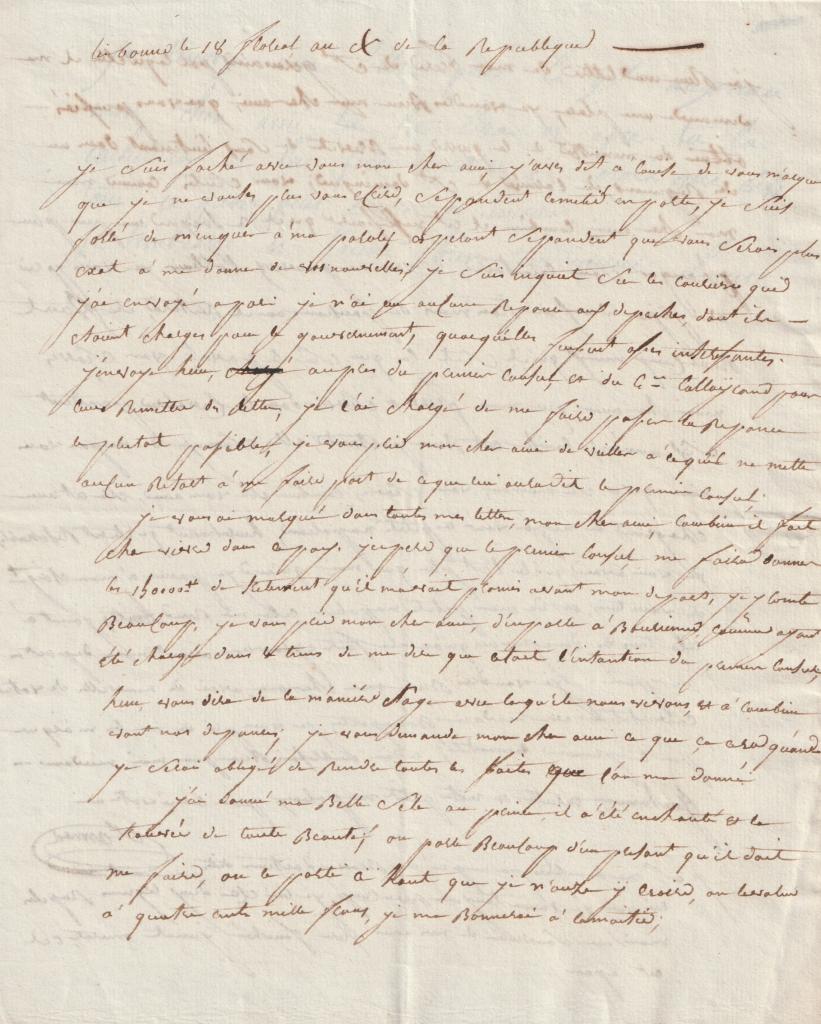 Lisbonne le 18 floreal an X de la Republique
je suis faché avec vous mon cher ami, j'avés dit a louise de vous marquer
que je ne voules plus vous Ecire, cependent en porte, je suis
forsé de menquer à ma parole esperant cepandent que vous serais plus
exat à me donner de vos nouvelles, je suis inquiet sur les couriers que
j'ai envoyé a paris je n'ai eu aucune Reponce aus depaches, dont ils
étoient charges pour le gouvernement, quoiquelles fussent asses intéressantes.
j'envoye hiene, au pres du premier consul, et du C.en Tallayrand pour
leurs Remettre des lettres, je l'ai chargé de me faire passer la Reponce
le plutot possible, je vous prie mon cher ami de veiller a ce quil ne mette
aucun Retart à me faire part de ce que lui aura dit le premier Consul.
je vous ai marqué dans toutes mes lettres, mon cher ami, combien il fait
cher vivre dans ce pays. j'espere que le premier consul, me faira donner
les 15000 de traitement qu'il m'avait promis avant mon depart, je y comte
Beaucoup. je vous prie mon cher ami, d'en parler à Bourienne, comme ayant
été chargé dans le tems de me dire que c'etait l'intantion du premier consul,
hiene, vous dira de la maniere sage avec laquele nous vivons, et à combien
vont nos depances, je vous demande mon cher ami ce que ça cera quand
je serai obligé de Rendre toutes les faites que l'on ma donné
j'ai donné ma Belle selle au prince il a été enchanté et la
trouvée de toute Beauté, on parle Beaucoup d'un présant qu'il doit
me faire, on le porte si haut que je n'ause y croire, on l'evalue
à quatre cents mille frans, je me Bornerai à la moitié,